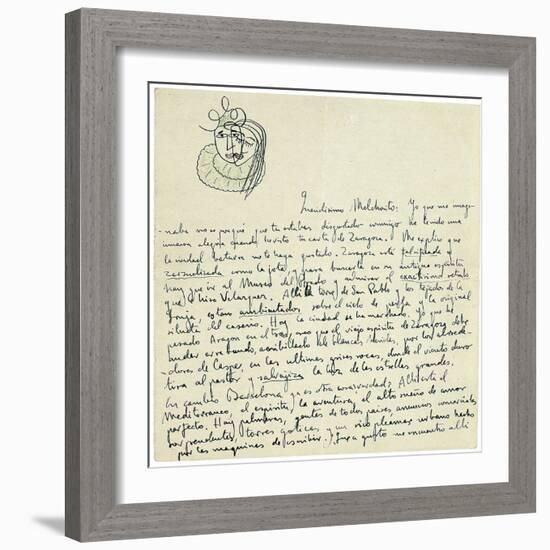 Queridísimo Melchorito: Yo que me imagi-
-naba no se porqué que tu estabas disgustado conmigo he tenido una
inmensa alegria cuando he visto tu carta de Zaragoza. Me explico que
la ciudad actual no te haya gustado. Zaragoza está falsificada y
zarzuelizada como la jota y para buscarla en su antiguo espíritu
hay que ir al Museo del Prado y admirar el exactísimo retrato
que hizo Velazquez. Allí la torre de San Pablo y los tejados de la
Lonja, estan ambientados sobre el cielo de perla y la original
silueta del caserio. Hoy la ciudad se ha marchado. Yo que he
pasado Aragon en el tren, creo que el viejo espíritu de Zaragoza debe
andar errabundo, acribillado de blancas heridas, por los alrede-
-dores de Caspe, en las ultimas grises rocas, donde el viento duro
tira al pastor y salvajiza la luz de las estrellas grandes.
En cambio Barcelona ya es otra cosa, ¿verdad? Allí está el
Mediterraneo, el espíritu, la aventura, el alto sueño de amor
perfecto. Hay palmeras, gentes de todos paises, anuncios comerciales
sorprendentes, torres goticas y un rico pleamar urbano hecho
por las maquinas de escribir. ¡Que a gusto me encuentro allí